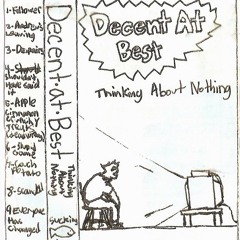 1-Follower
2-Andrew's
Leaving
3-Despair
4-
Shouldn't
Have said
it
5-Apple
Cinnamon
Crunchy
6-Stupid
Game
7-Couch
Potato
8-Scandal
9 Everyone
Has
Changed
Decent-at-Best
Thinking
About
Nothing
sucking
Decent At
Best
Thinking About Nothing